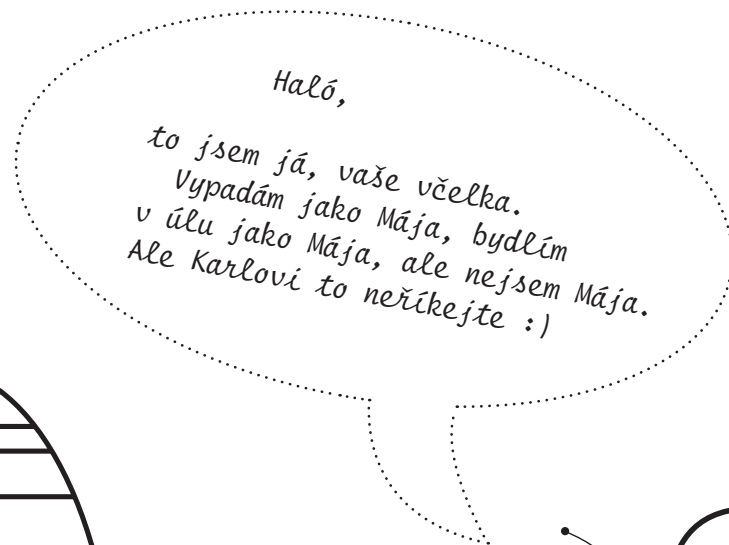 Haló,
to jsem já, vaše včelka.
Vypadám jako Mája, bydlím
v úlu jako Mája, ale nejsem Mája.
Ale Karlovi to neříkejte :)